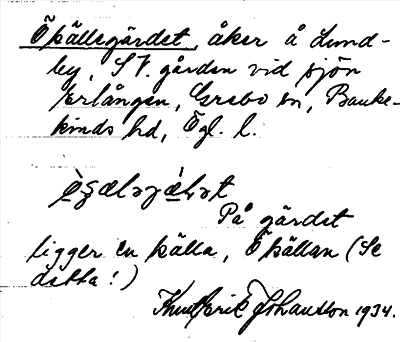 Ökällegärdet, åker å Lund-
by, St. gården vid sjön
Erlången, Grebo sn, Banke-
kinds hd, Ögl. l.
På gärdet
ligger en källa, Ökällan (Se
detta!)
Knut Erik Johansson 1934.